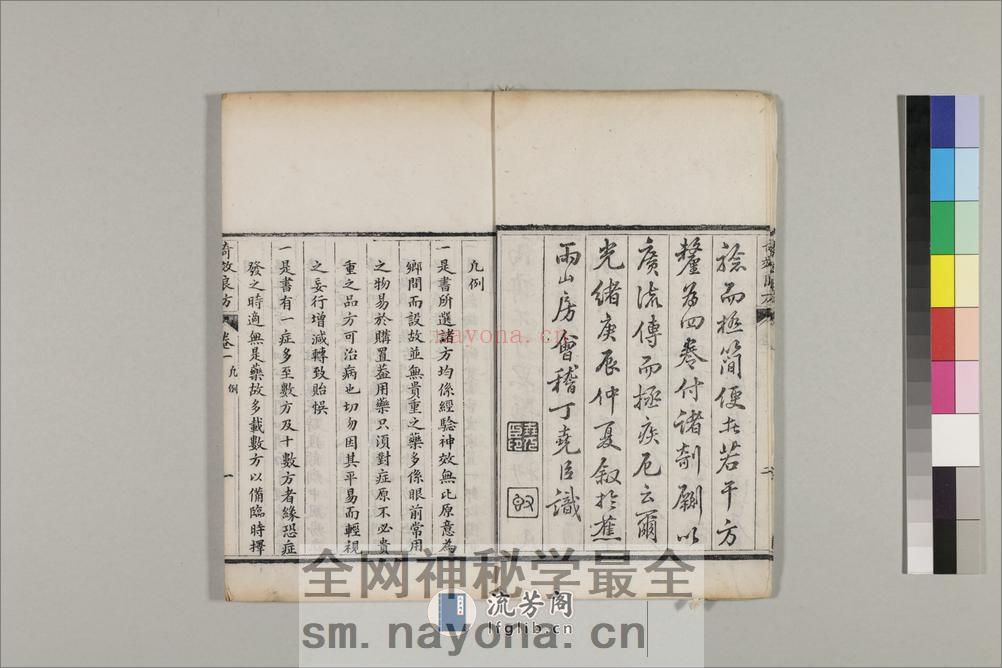 驗而極簡便者若干方
釐為四卷付諸剞劂以
廣流傳而拯疾厄云爾
光緒庚辰仲夏敘於蕉
雨山房會稽丁堯臣識
凡例
一是書所選諸方均係經驗神效無比原意為
鄉間而設故並無貴重之藥多係眼前常用
之物易於購置蓋用藥只須對症原不必貴
重之品方可治病也切勿因其平易而輕視
之妄行增減轉致貽悞
一是書有一症多至數方及十數方者緣恐症
發之時適無是藥故多載數方以備臨時擇
奇效良方
卷一
凡例
一
二
nayona.com
全网神秘学最全
流芳阁
lfglib.cn
sm.nayona.cn